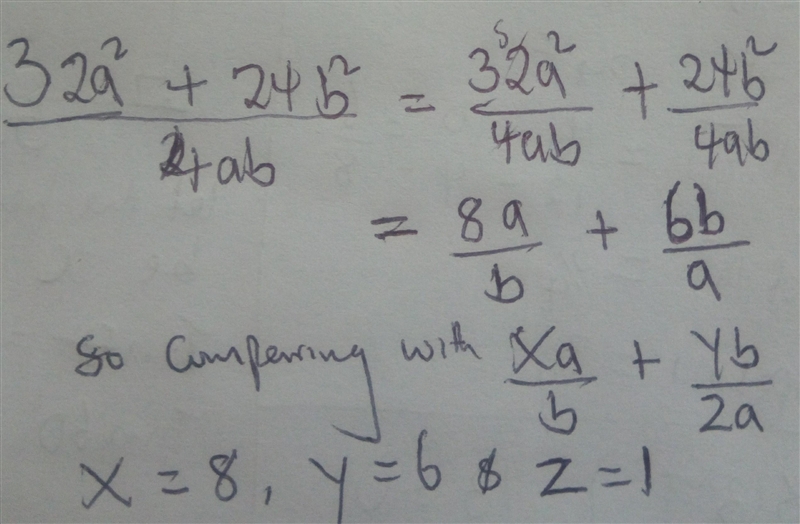 32a² + 24b² / 4ab = 32a² / 4ab + 24b² / 4ab
= 8a / b + 6b / a
So Comperring with Xa / b + Yb / 2a
X = 8, Y = 6 & Z = 1